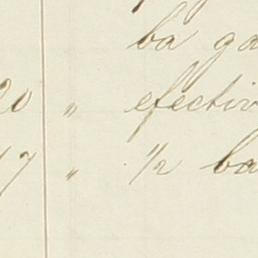 ba ga
20 " efectiv
17 " ½ ba